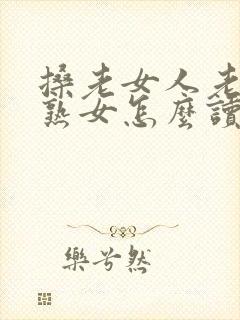 搡老女人老
熟女怎麼讀
樂兮然